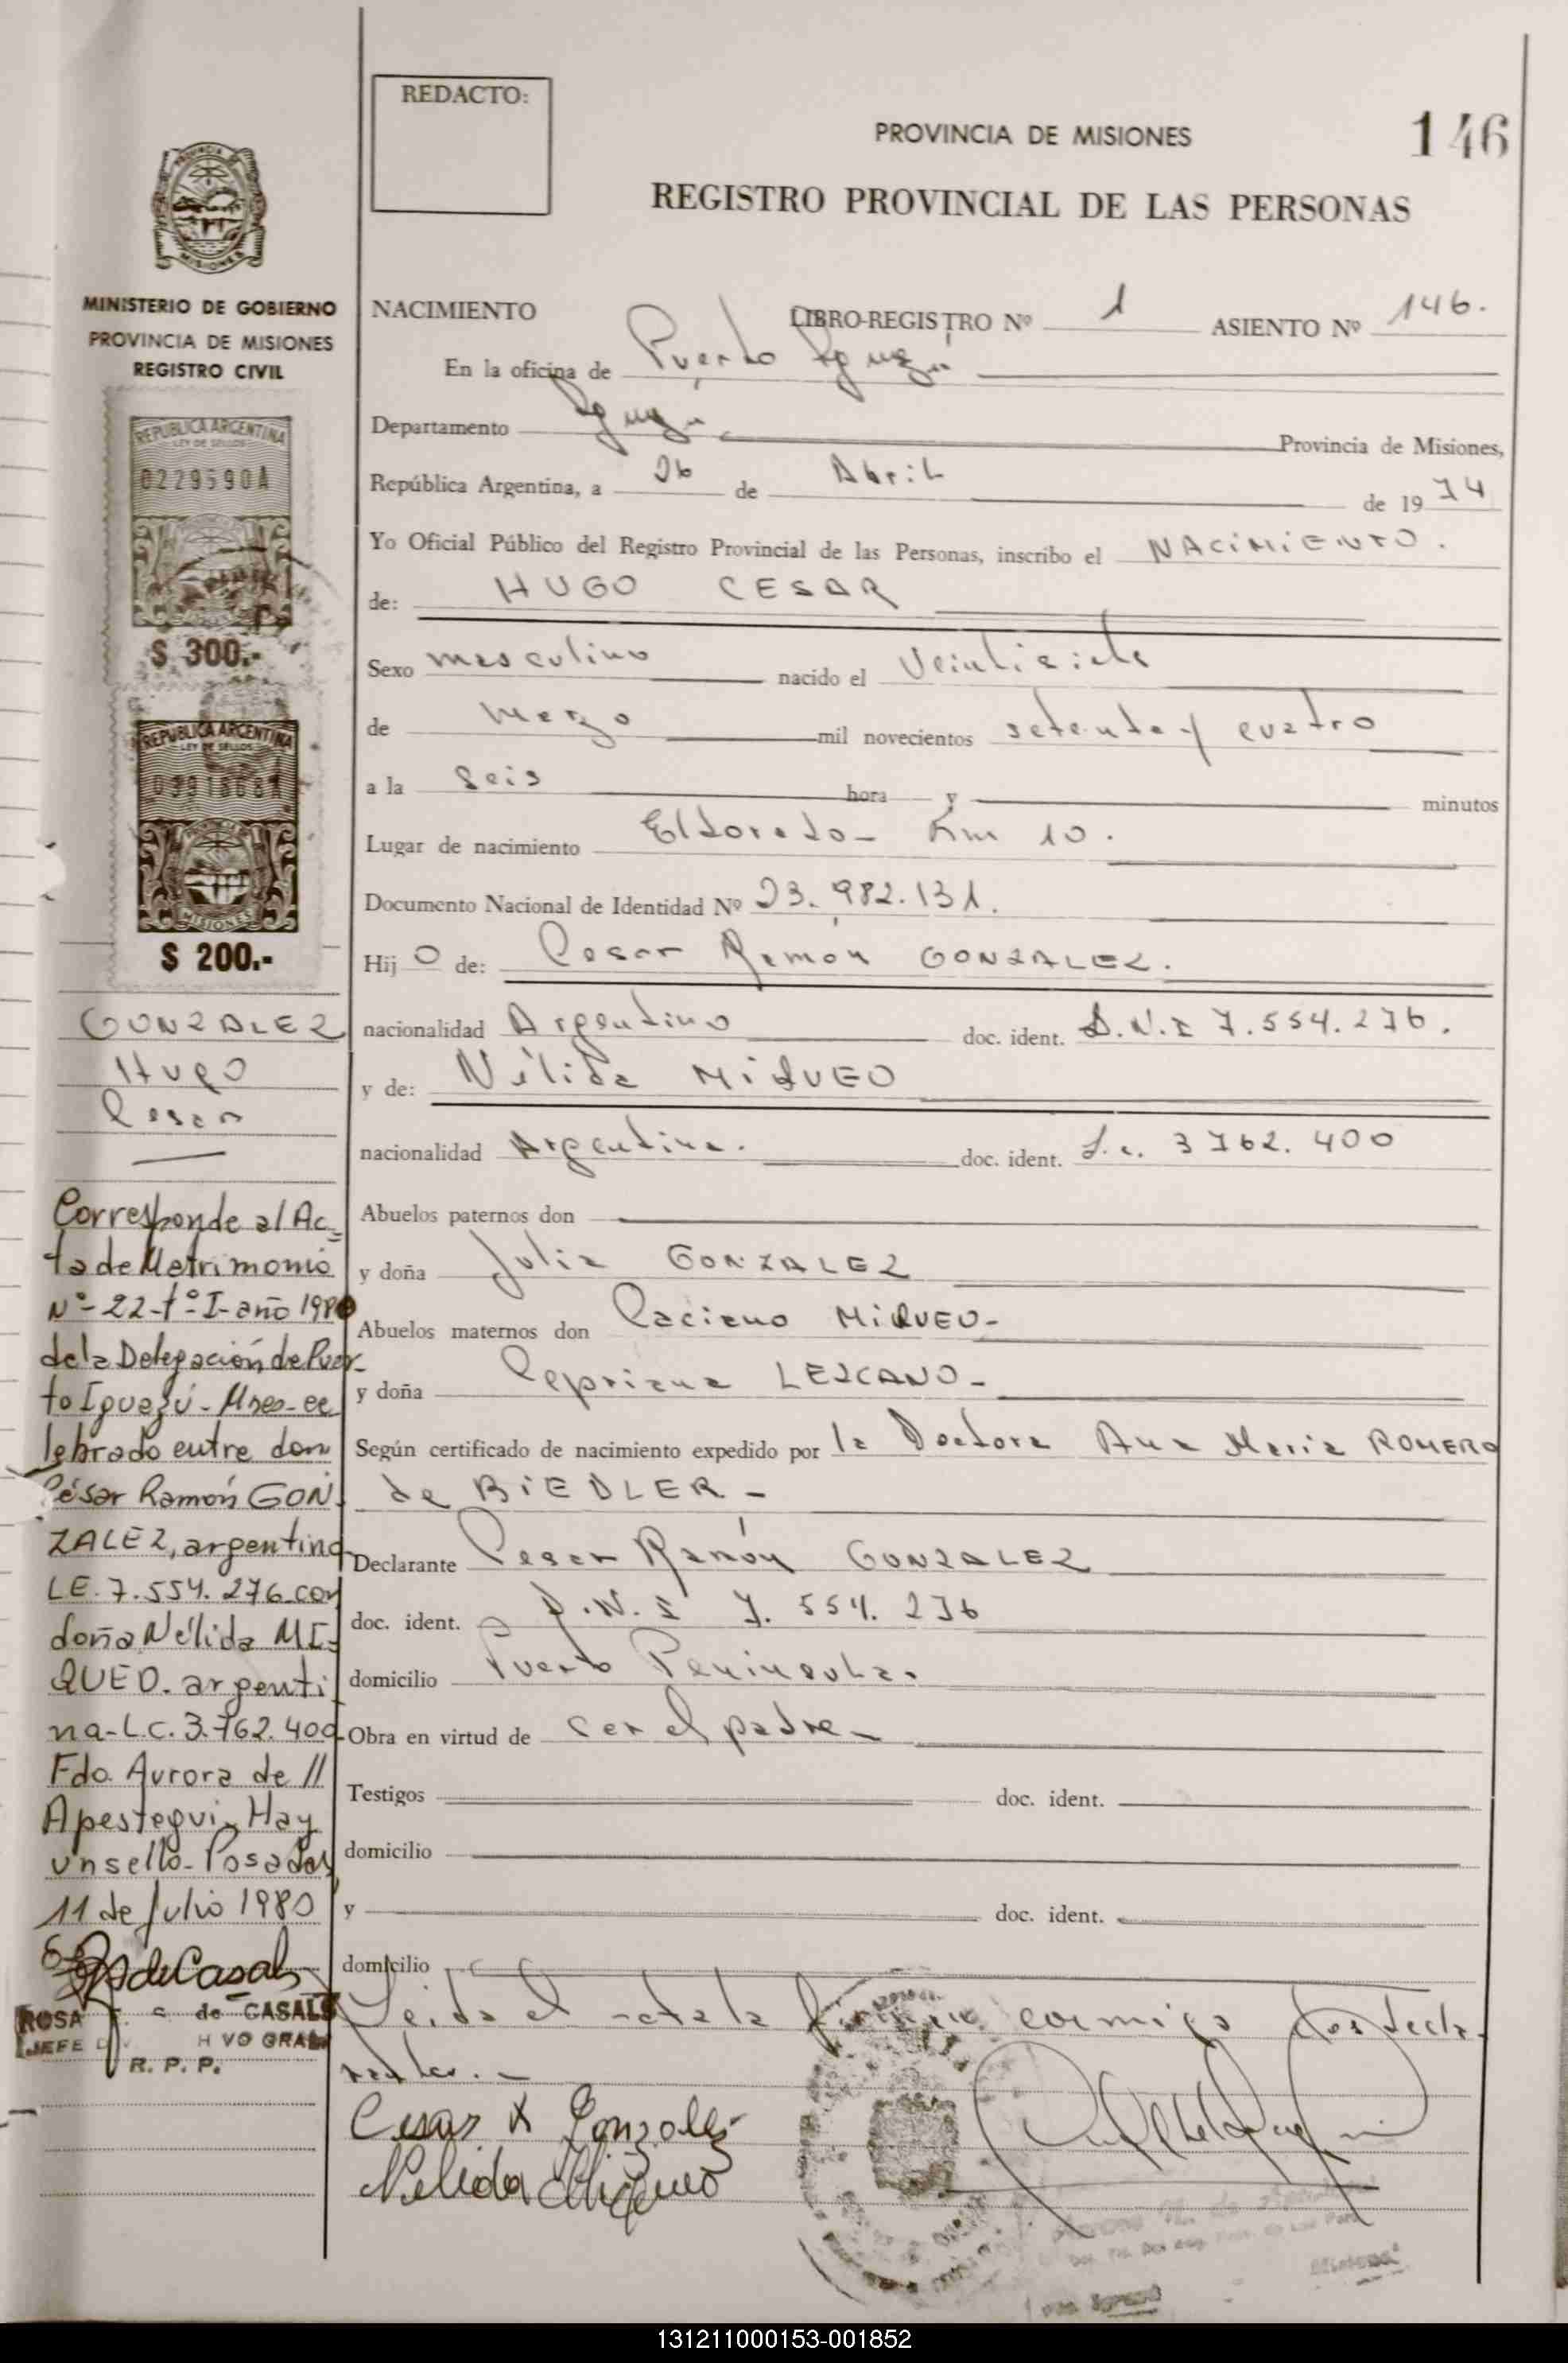 REDACTO:
PROVINCIA DE MISIONES
146
REGISTRO PROVINCIAL DE LAS PERSONAS
MISIONES
MINISTERIO DE GOBIERNO
PROVINCIA DE MISIONES
REGISTRO CIVIL
REPUBLICA ARGENTINA
LEY DE SELLOS
0229590A
$ 300.-
REPUBLICA ARGENTINA
LEY DE SELLOS
MISIONES
$ 200.-
GONZALEZ
Hugo
Cesar
Corresponde al Ac-
ta de Matrimonio
Nº- 22-tº-I-año 1980
de la Delegación de Puer-
to Iguazú - Mnes- ce
lebrado entre don
César Ramón GON-
ZALEZ, argentino
LE. 7.554.276 con
doña Nélida MI-
QUEO. argenti
na-L.C. 3.762.400
Fdo. Aurora de
Apestegui- Hay
un sello- Posadas
11 de Julio 1980
de Casals
ROSA de CASALS
JEFE VO GRAL
R. P. P.
NACIMIENTO LIBRO-REGISTRO Nº 1 ASIENTO Nº 146.
En la oficina de Puerto Iguazú
Departamento Iguazú Provincia de Misiones,
República Argentina, a 26 de Abril de 1974
Yo Oficial Público del Registro Provincial de las Personas, inscribo el NACIMIENTO.
de: HUGO CESAR
Sexo masculino nacido el Veintisiete
de Marzo mil novecientos setenta y cuatro
a la Seis hora y minutos
Lugar de nacimiento Eldorado- Km 10.
Documento Nacional de Identidad Nº 23.982.131.
Hijo de: Cesar Ramón GONZALEZ.
nacionalidad Argentino doc. ident. D.N.I 7.554.276.
y de: Nélida MIQUEO
nacionalidad Argentina. doc. ident. L.c. 3762.400
Abuelos paternos don
y doña Julia GONZALEZ
Abuelos maternos don Paciano MIQUEO-
y doña Cepriana LEZCANO-
Según certificado de nacimiento expedido por la Doctora Ana Maria ROMERO
de BIEDLER -
Declarante Cesar Ramón GONZALEZ
doc. ident. D.N.I 7.554.276
domicilio Puerto Peninsula.
Obra en virtud de cer el padre-
Testigos doc. ident.
domicilio
y doc. ident.
domicilio
Leida el acta la firman conmigo los decla-
rantes.-
Cesar R Gonzalez
Nelida Miqueo
131211000153-001852